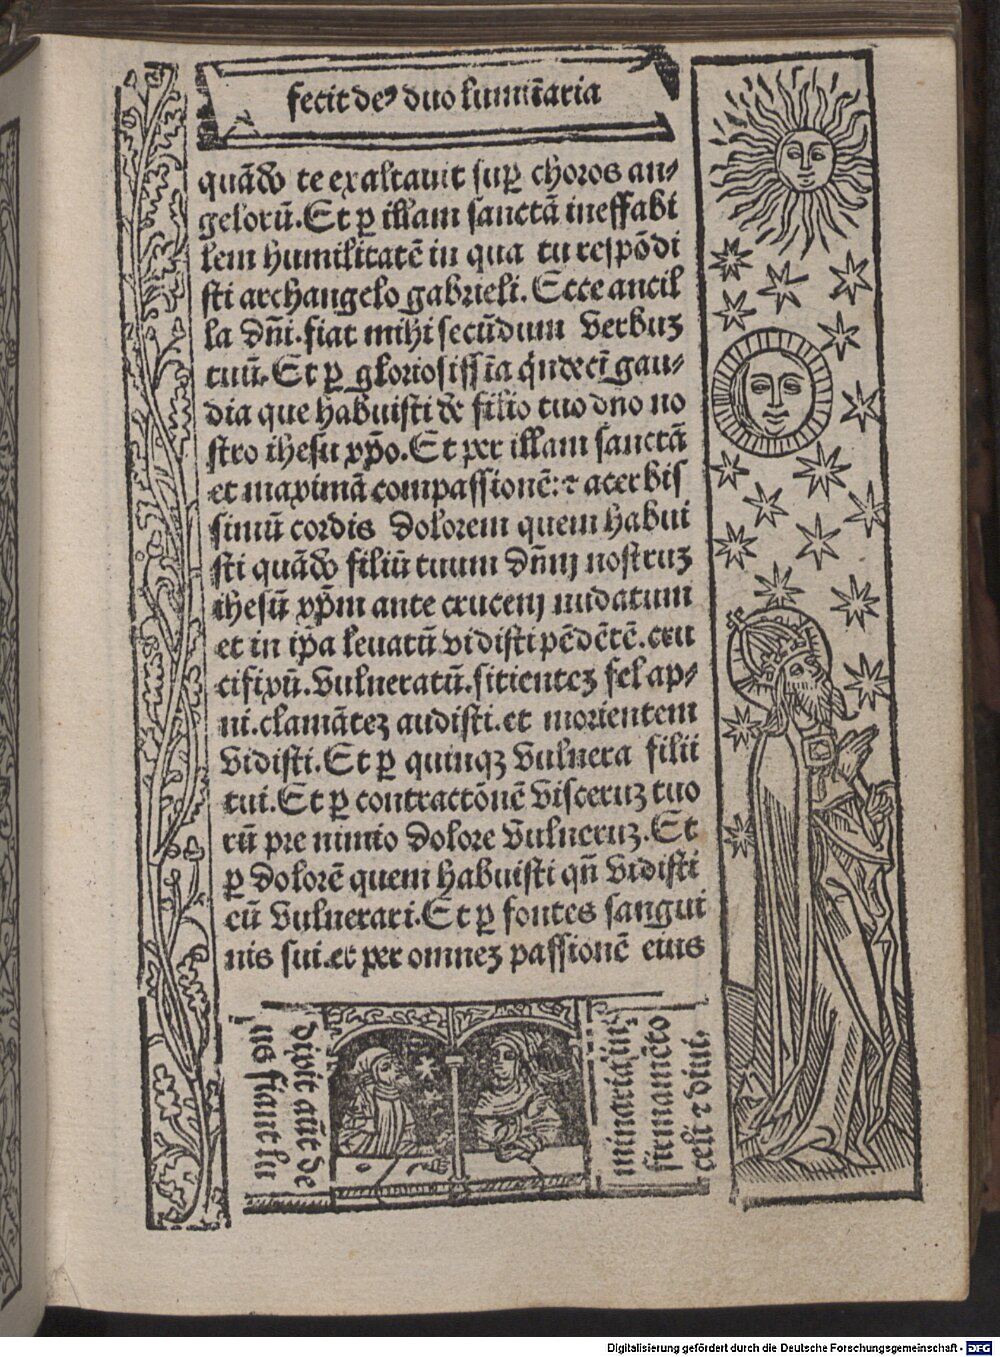 fecit deꝰ duo lumīaria
quādo te exaltauit suꝑ choros an⸗
gelorū. Et ꝑ illam sanctā ineffabi
lem humilitatē in qua tu respōdi
sti archangelo gabrieli. Ecce ancil
la dn̄i. fiat mihi secūdum verbuꝫ
tuū. Et ꝑ gloriosissīa qͥndecī gau⸗
dia que habuisti de filio tuo dno no
stro ihesu xp̄o. Et per illam sanctā
et maximā compassionē: ⁊ acerbis
simū cordis dolorem quem habui
sti quādo filiū tuum dn̄m nostruꝫ
ihesū xp̄m ante crucem nudatum
et in ip̄a leuatū vidisti pēdētē. cru
cifixū. vulneratū. sitienteꝫ fel ap⸗
ni. clamāteꝫ audisti. et morientem
vidisti. Et ꝑ quinqꝫ vulnera filii
tui. Et ꝑ contractōnē visceruꝫ tuo
rū pre nimio dolore vulneruꝫ. Et
ꝑ dolorē quem habuisti qn̄ vidisti
eū vulnerari. Et ꝑ fontes sangui
nis sui. et per omneꝫ passionē eius
dixit aūt de
us fiant lu
minaria in
firmamēto
celi ⁊ diui.
Digitalisierung gefördert durch die Deutsche Forschungsgemeinschaft - DFG